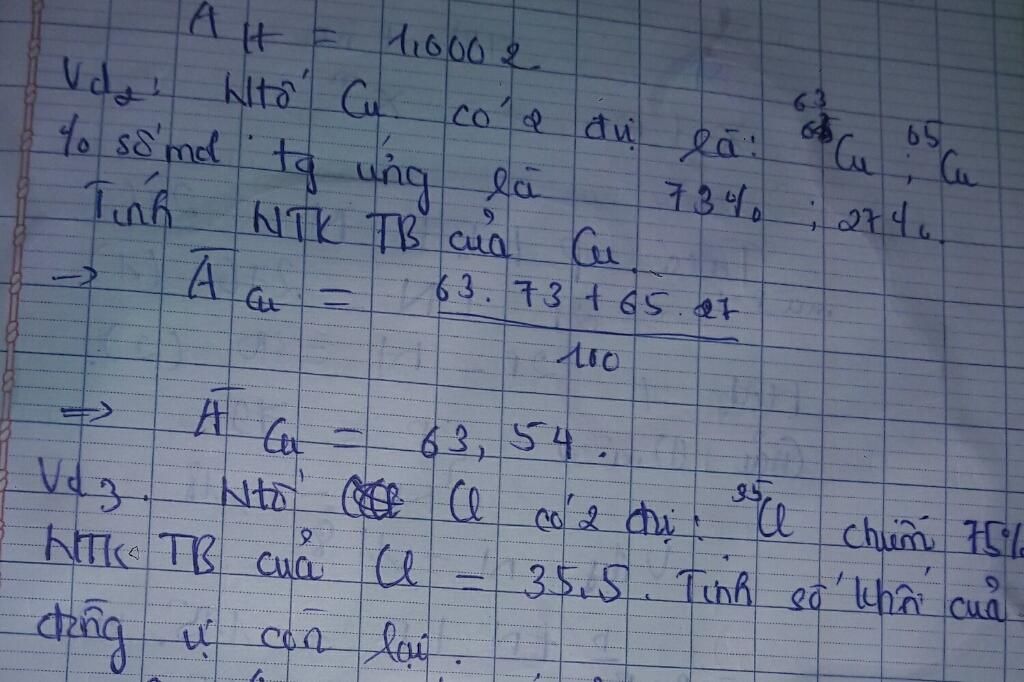 A H = 1,0002
Vd2: Ntố Cu có 2 đvị là: ⁶³Cu ; ⁶⁵Cu
% số mol tg ứng là 73% ; 27%.
Tính NTK TB của Cu.
→ Ā Cu = 63.73 + 65.27
100
⇒ Ā Cu = 63,54.
Vd3. Ntố Cl có 2 đvị: ³⁵Cl chiếm 75%
NTK TB của Cl = 35,5. Tính số khối của
đồng vị còn lại.